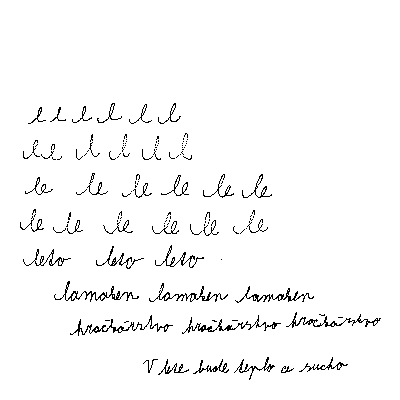 e e e l l l
le le l l le l
le le le le le le
le le le le le le
leto leto leto
lamohen lamohen lamohen
hračkárstvo hračkárstvo hračkárstvo
V lete bude teplo a sucho